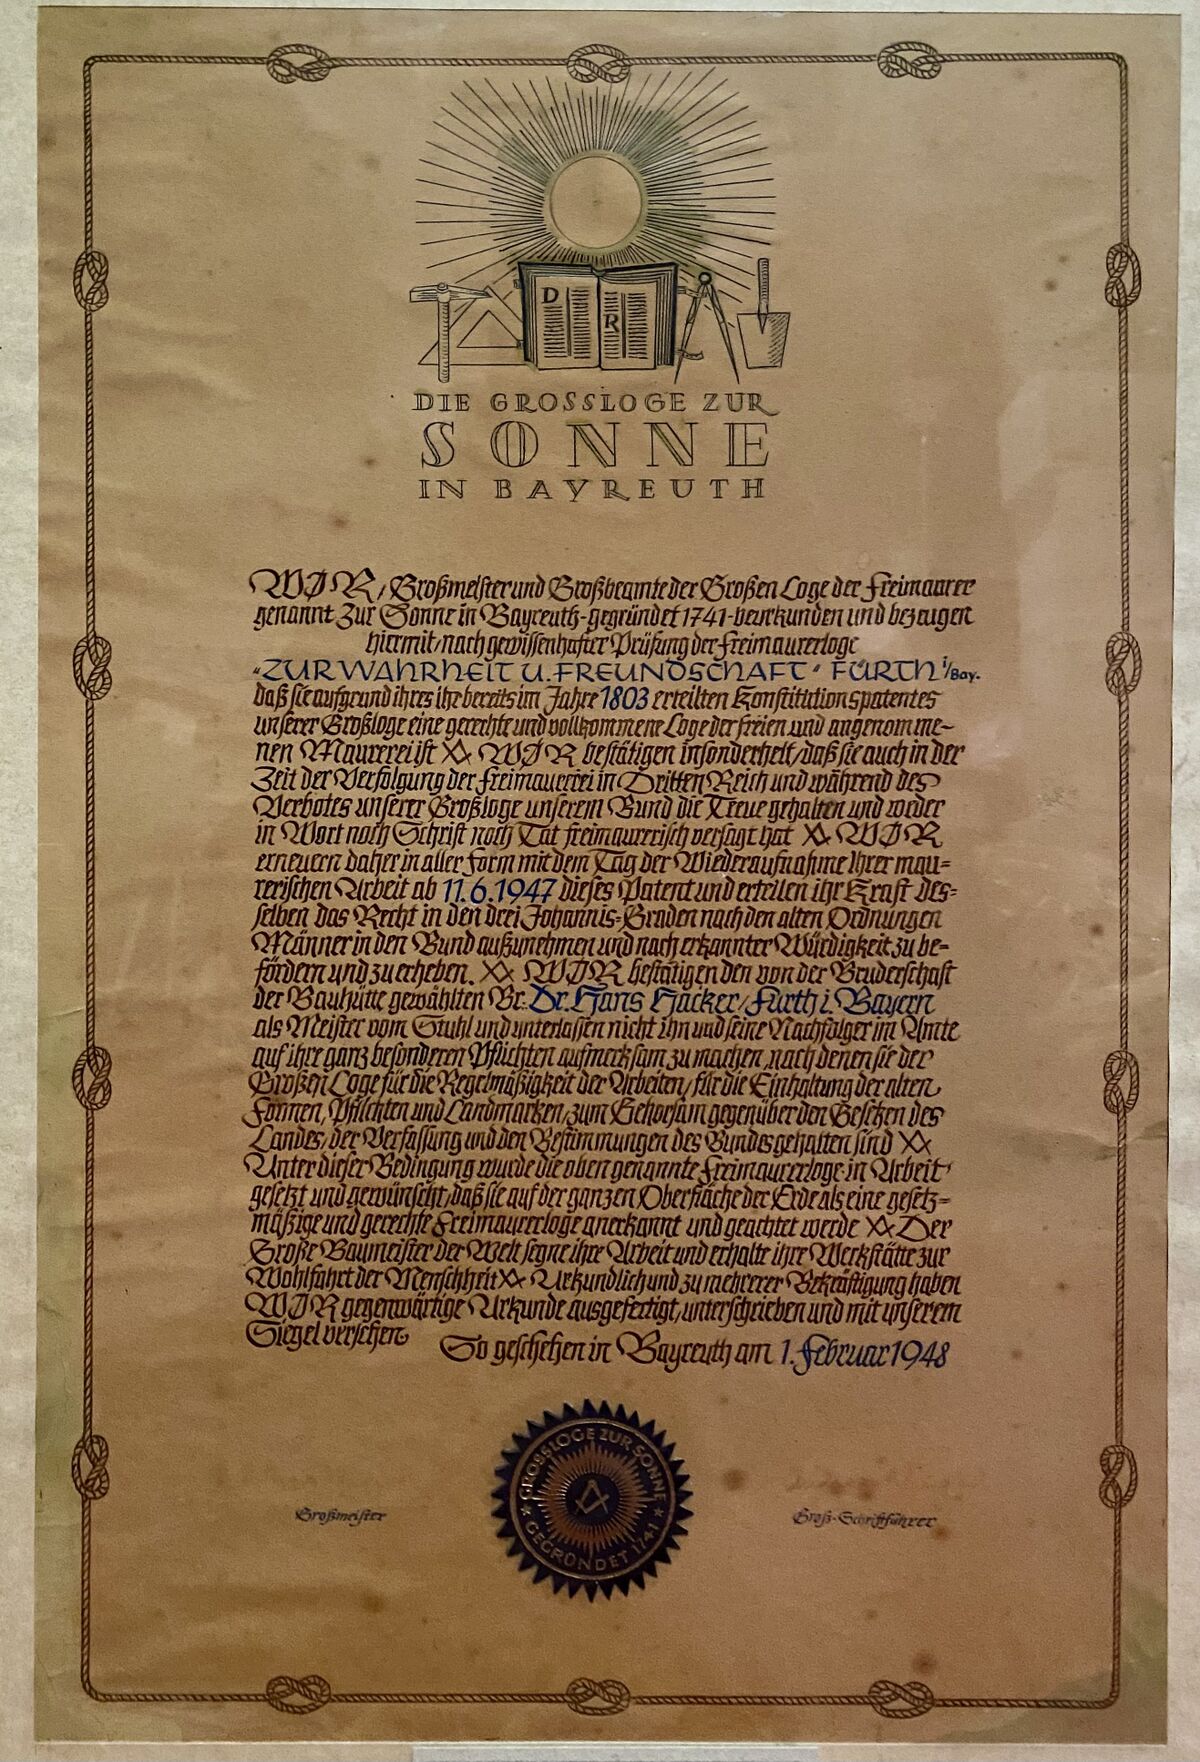 D
R
DIE GROSSLOGE ZUR
SONNE
IN BAYREUTH
WIR, Großmeister und Großbeamte der Großen Loge der Freimaurer
genannt Zur Sonne in Bayreuth-gegründet 1741-beurkunden und bezeugen
hiermit, nach gewissenhafter Prüfung der Freimaurerloge
"ZUR WAHRHEIT U. FREUNDSCHAFT" FÜRTH i/Bay.
daß sie aufgrund ihres ihr bereits im Jahre 1803 erteilten Konstitutionspatentes
unserer Großloge eine gerechte und vollkommene Loge der freien und angenomme-
nen Maurerei ist WIR bestätigen insonderheit, daß sie auch in der
Zeit der Verfolgung der Freimauerei in Dritten Reich und während des
Verbotes unserer Großloge unserem Bund die Treue gehalten und weder
in Wort noch Schrift noch Tat freimaurerisch versagt hat WIR
erneuern daher in aller Form mit dem Tag der Wiederaufnahme Ihrer mau=
rerischen Arbeit ab 11.6.1947 dieses Patent und erteilen ihr Kraft des=
selben das Recht in den drei Johannis=Graden nach den alten Ordnungen
Männer in den Bund aufzunehmen und nach erkannter Würdigkeit zu be=
fördern und zu erheben. WIR bestätigen den von der Bruderschaft
der Bauhütte gewählten Br. Dr. Hans Hacker, Fürth i. Bayern
als Meister vom Stuhl und unterlassen nicht ihn und seine Nachfolger im Amte
auf ihre ganz besonderen Pflichten aufmerksam zu machen, nach denen sie der
Großen Loge für die Regelmäßigkeit der Arbeiten, für die Einhaltung der alten
Formen, Pflichten und Landmarken, zum Gehorsam gegenüber den Gesetzen des
Landes, der Verfassung und den Bestimmungen des Bundes gehalten sind
Unter dieser Bedingung wurde die oben genannte Freimaurerloge in Arbeit
gesetzt und gewünscht, daß sie auf der ganzen Oberfläche der Erde als eine gesetz=
mäßige und gerechte Freimaurerloge anerkannt und geachtet werde Der
Große Baumeister der Welt segne ihre Arbeit und erhalte ihre Werkstätte zur
Wohlfahrt der Menschheit Urkundlich und zu mehrerer Bekräftigung haben
WIR gegenwärtige Urkunde ausgefertigt, unterschrieben und mit unserem
Siegel versehen
So geschehen in Bayreuth am 1. Februar 1948
GROSSLOGE ZUR SONNE
GEGRÜNDET 1741
Großmeister
Groß-Schriftführer